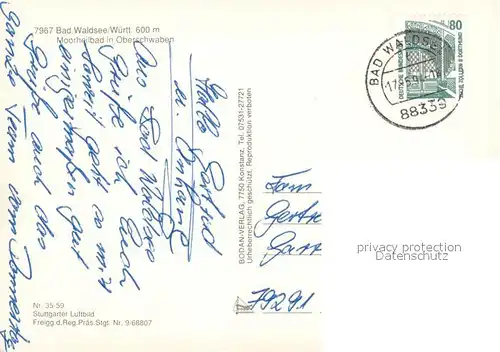 7967 Bad Waldsee/Württ. 600 m
Moorheilbad in Oberschwaben
Hallo
u.
Aus Bad Waldsee
Grüße ich Euch
Soweit geht es mir
einigermaßen gut
Grüße auch das
ganze Team
Nr. 35-59
Stuttgarter Luftbild
Freigg d.Reg.Präs.Stgt Nr. 9/68807
BODAN-VERLAG, 7750 Konstanz, Tel. 07531-27721
Urheberrechtlich geschützt. Reproduktion verboten
80
DEUTSCHE BUNDESPOST
ZECHE ZOLLERN II DORTMUND
BAD WALDSEE
88339
Fam
Gertr
79291
privacy protection
Datenschutz